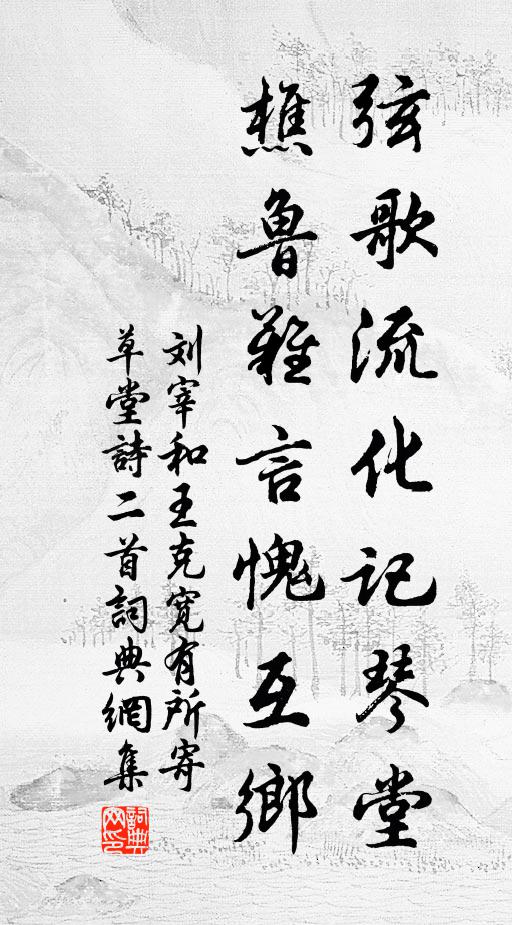 弦歌流化记琴堂
樵鲁難言愧互鄉
刘宰和王克宽有所寄
草堂詩二首詞典網集
詞典
网印